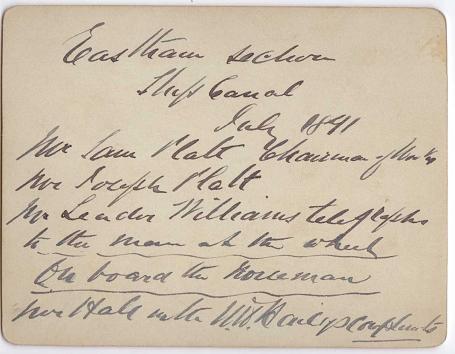 Eastham section
Ship Canal
July 1891
Mr Sam Platt Chairman of Works
Mr Joseph Platt
Mr Leader Williams telegraphs
to the man at the wheel
On board the
Mr Hall with the compliments